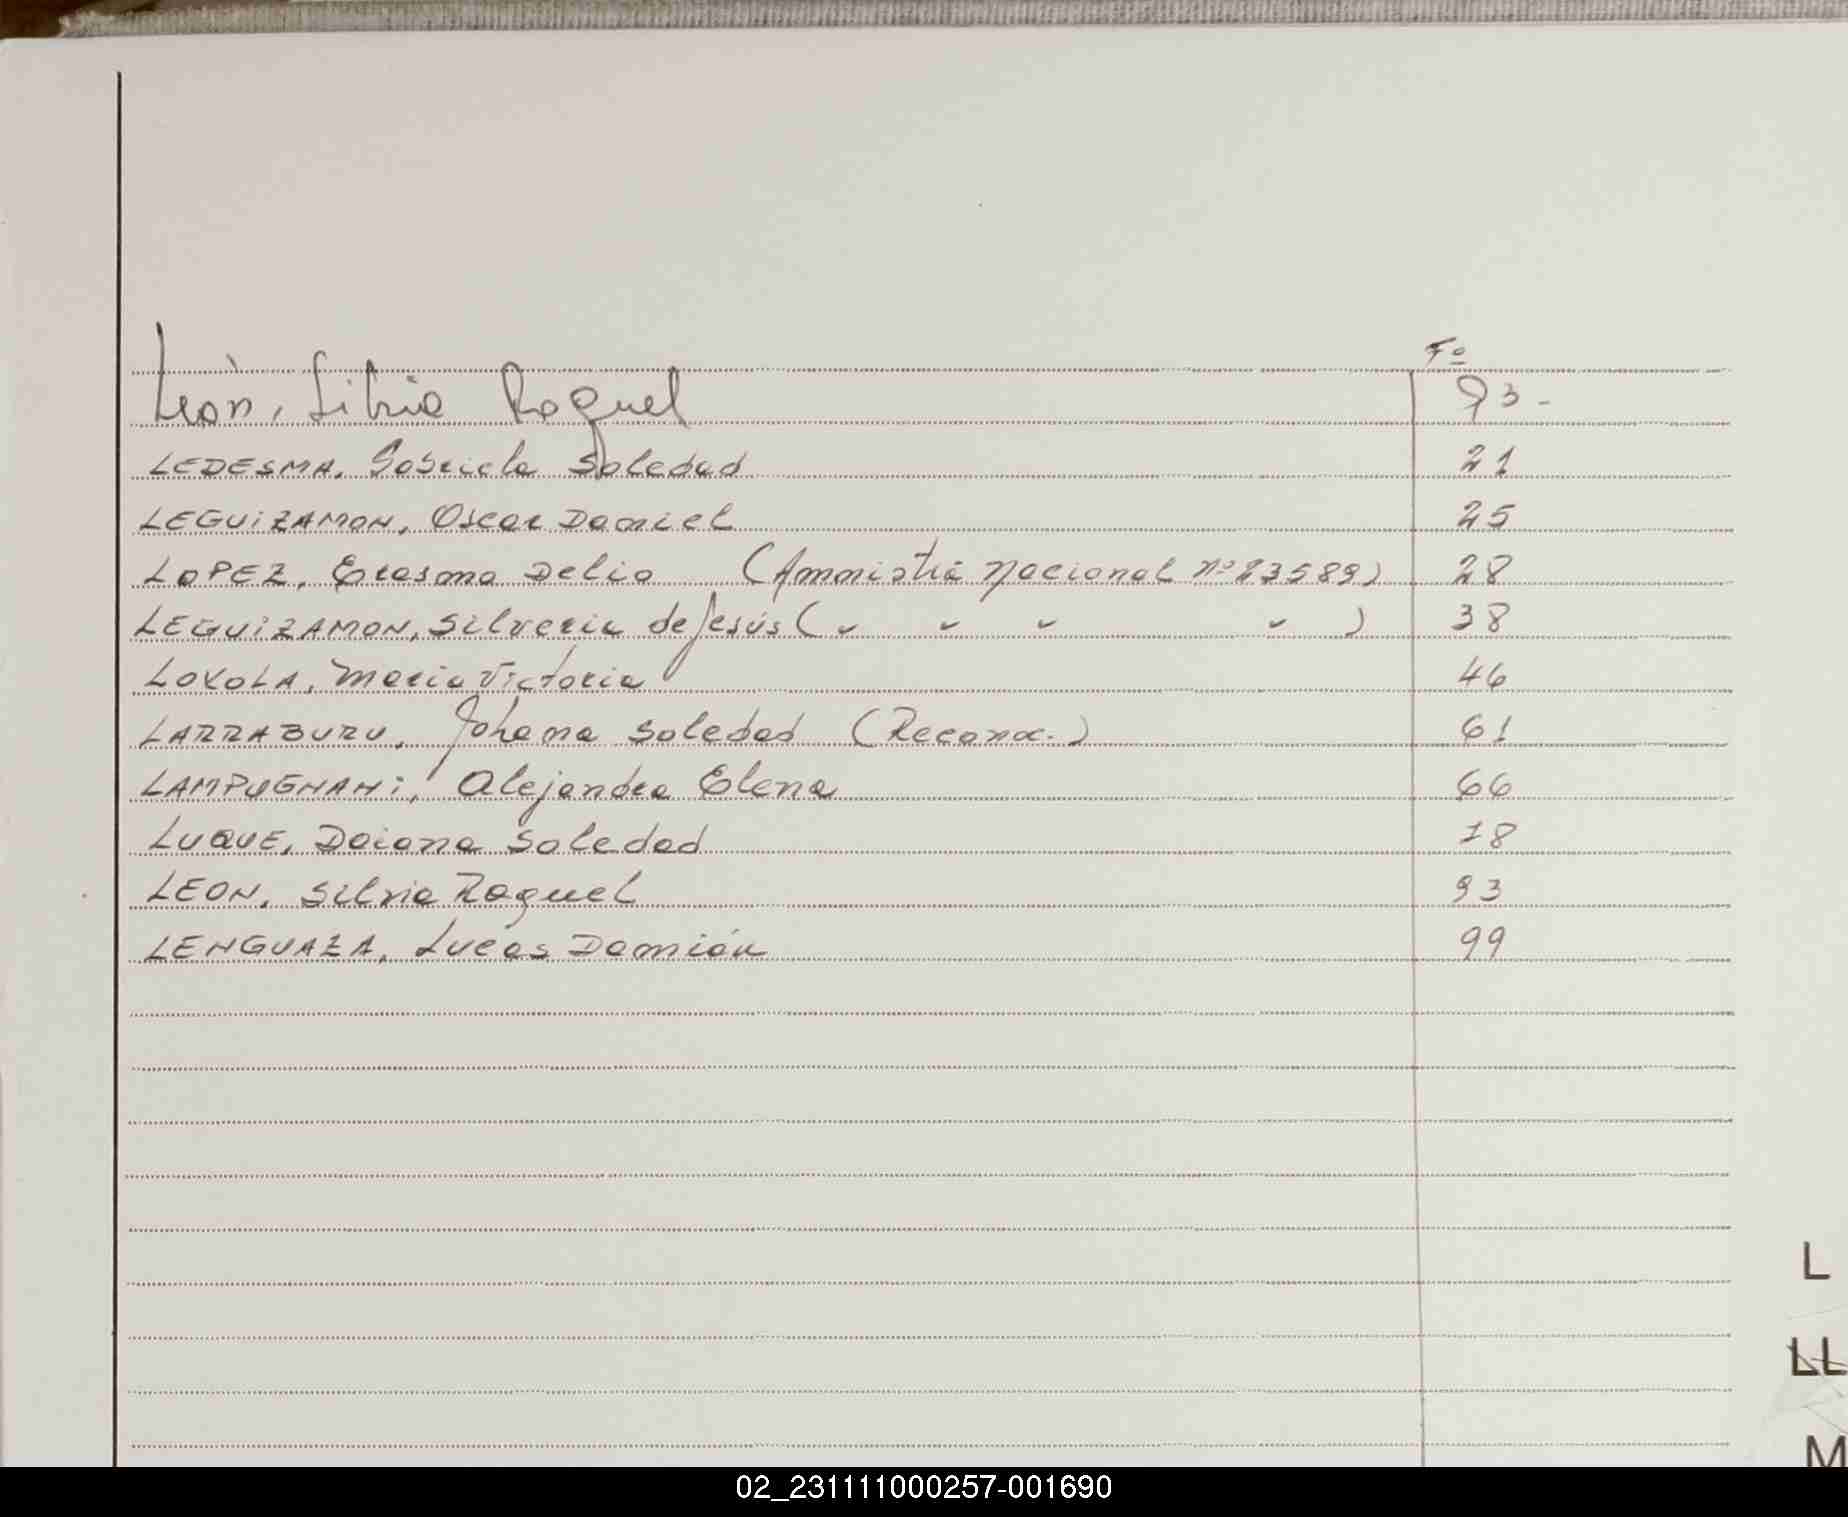 Fº
León, Silvia Raquel 93-
LEDESMA, Gabriela Soledad 21
LEGUiZAMON, Oscar Daniel 25
LOPEZ, Erasmo Delio (Amnistía Nacional nº 23589) 28
LEGUiZAMON, Silveria de Jesús ( " " " " ) 38
LOYOLA, Maria Victoria 46
LARRABURU, Johana Soledad (Reconoc.) 61
LAMPUGNANi, Alejandra Elena 66
LUQUE, Daiana Soledad 78
LEON, Silvia Raquel 93
LENGUAZA, Lucas Damián 99
L
LL
M
02_231111000257-001690